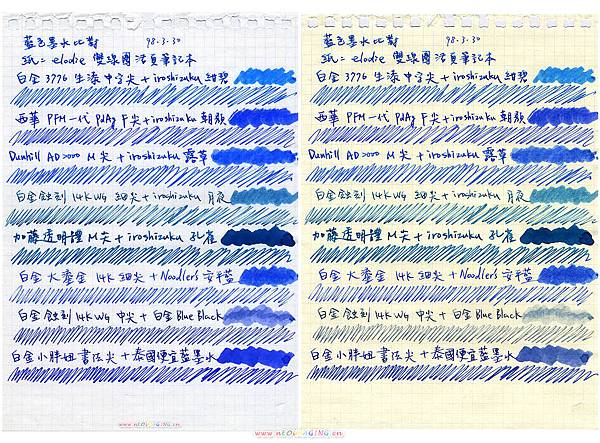 藍色墨水比對 98.3.30
紙: elodie 雙線圈活頁筆記本
白金 3776 生漆中字尖+iroshizuku 紺碧
西華 PFM一代 PdAg F尖+iroshizuku 朝顏
Dunhill AD2000 M尖+iroshizuku 露草
白金蝕刻 14K WG 細尖+iroshizuku 月夜
加藤透明狸 M尖+iroshizuku 孔雀
白金大漆金 14K 細尖+Noodlers 方平藍
白金蝕刻 14K WG 中尖+白金Blue Black
白金小胖妞書法尖+泰國便宜藍墨水
藍色墨水比對 98.3.30
紙= elodie 雙線圈活頁筆記本
白金 3776 生漆中字尖+iroshizuku 紺碧
西華 PFM一代 PdAg F尖+iroshizuku 朝顏
Dunhill AD2000 M尖+iroshizuku 露草
白金蝕刻 14K WG 細尖+iroshizuku 月夜
加藤透明狸 M尖+iroshizuku 孔雀
白金大漆金 14K 細尖+Noodlers 方平藍
白金蝕刻 14K WG 中尖+白金Blue Black
白金小胖妞書法尖+泰國便宜藍墨水
www.nEOIMAGING.cn
www.nEOIMAGING.cn